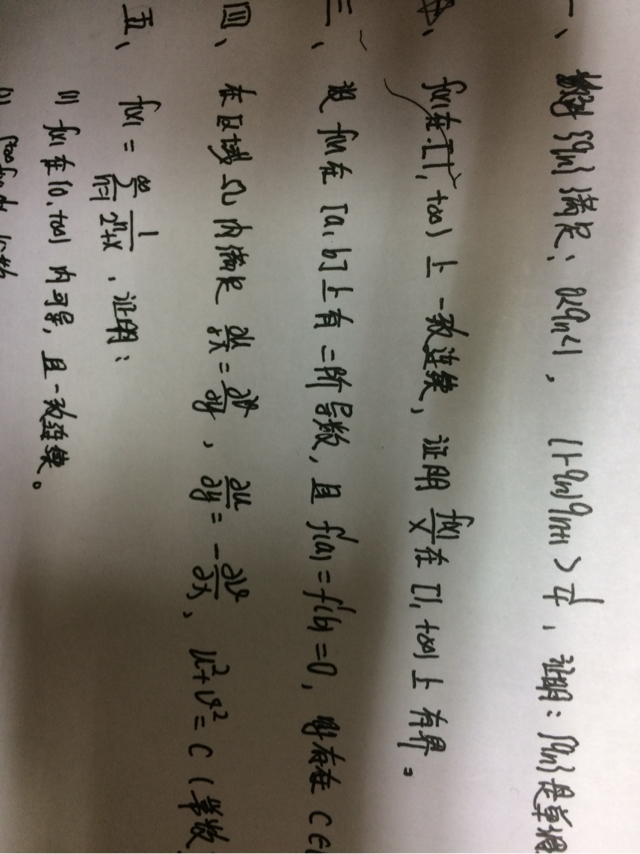 一、数列{aₙ}满足：0<aₙ<1， (1-aₙ)aₙ₊₁ > 1/4，证明：{aₙ}是单调
f(x)在[1, +∞)上一致连续，证明 f(x)/x 在[1, +∞)上有界。
三、设f(x)在[a, b]上有二阶导数，且f'(a)=f'(b)=0，则存在C∈
四、在区域Ω内满足 ∂u/∂x=∂v/∂y，∂u/∂y=-∂v/∂x，u²+v²=C (常数
五、f(x) = ∑_{n=1}^{∞} 1/(2ⁿ+x)，证明：
(1) f(x)在[0, +∞)内可导，且一致连续。